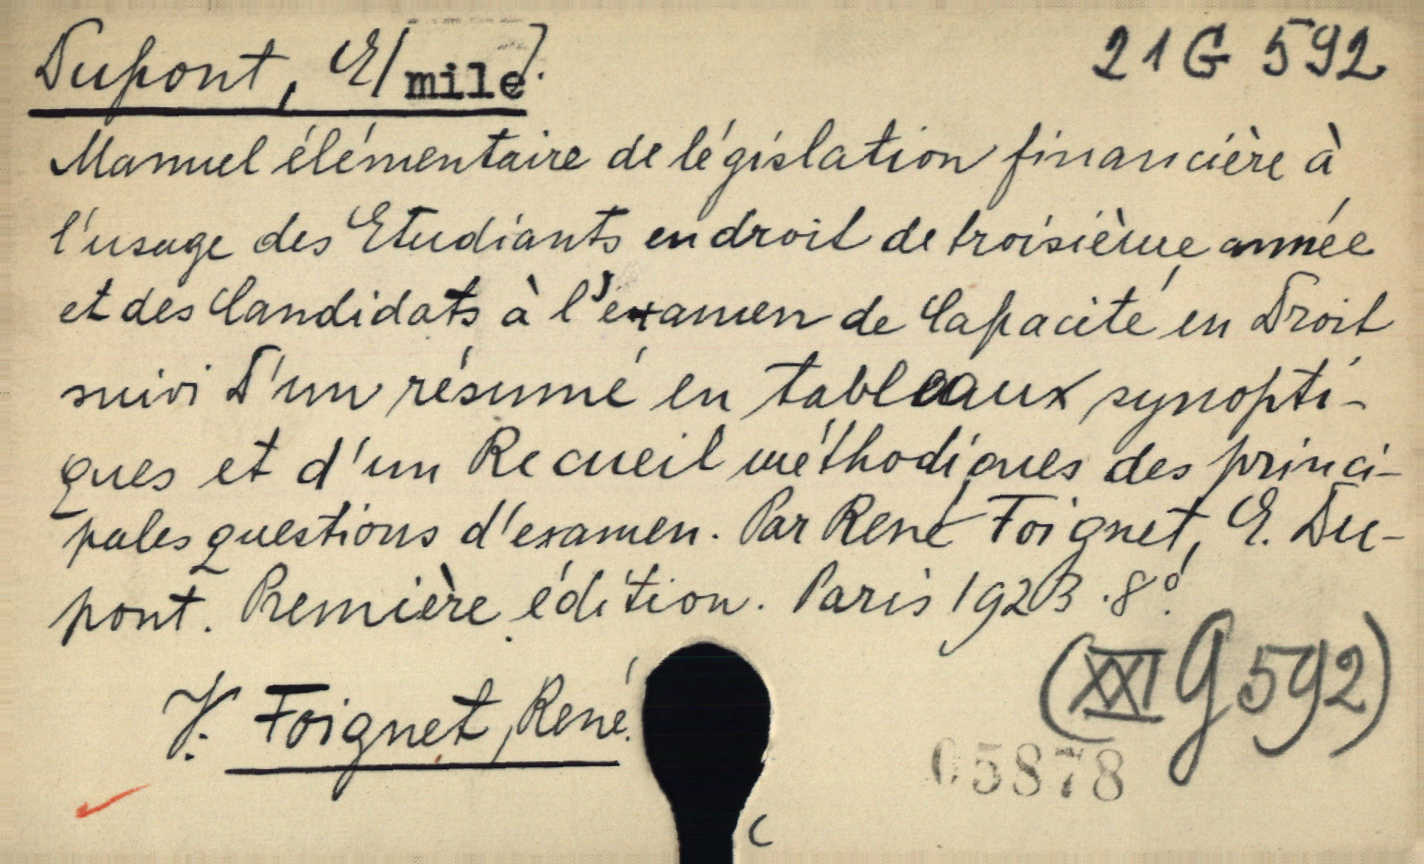 Dupont, E[mile].
21 G 592
Manuel élémentaire de législation financière à
l'usage des Etudiants en droit de troisième année
et des Candidats à l'examen de Capacité en Droit
suivi d'un résumé en tableaux synopti-
ques et d'un Recueil méthodiques des princi-
pales questions d'examen. Par René Foignet, E. Du-
pont. Première édition. Paris 1923. 8º.
V. Foignet, René.
(XXI G 592)
05878
C